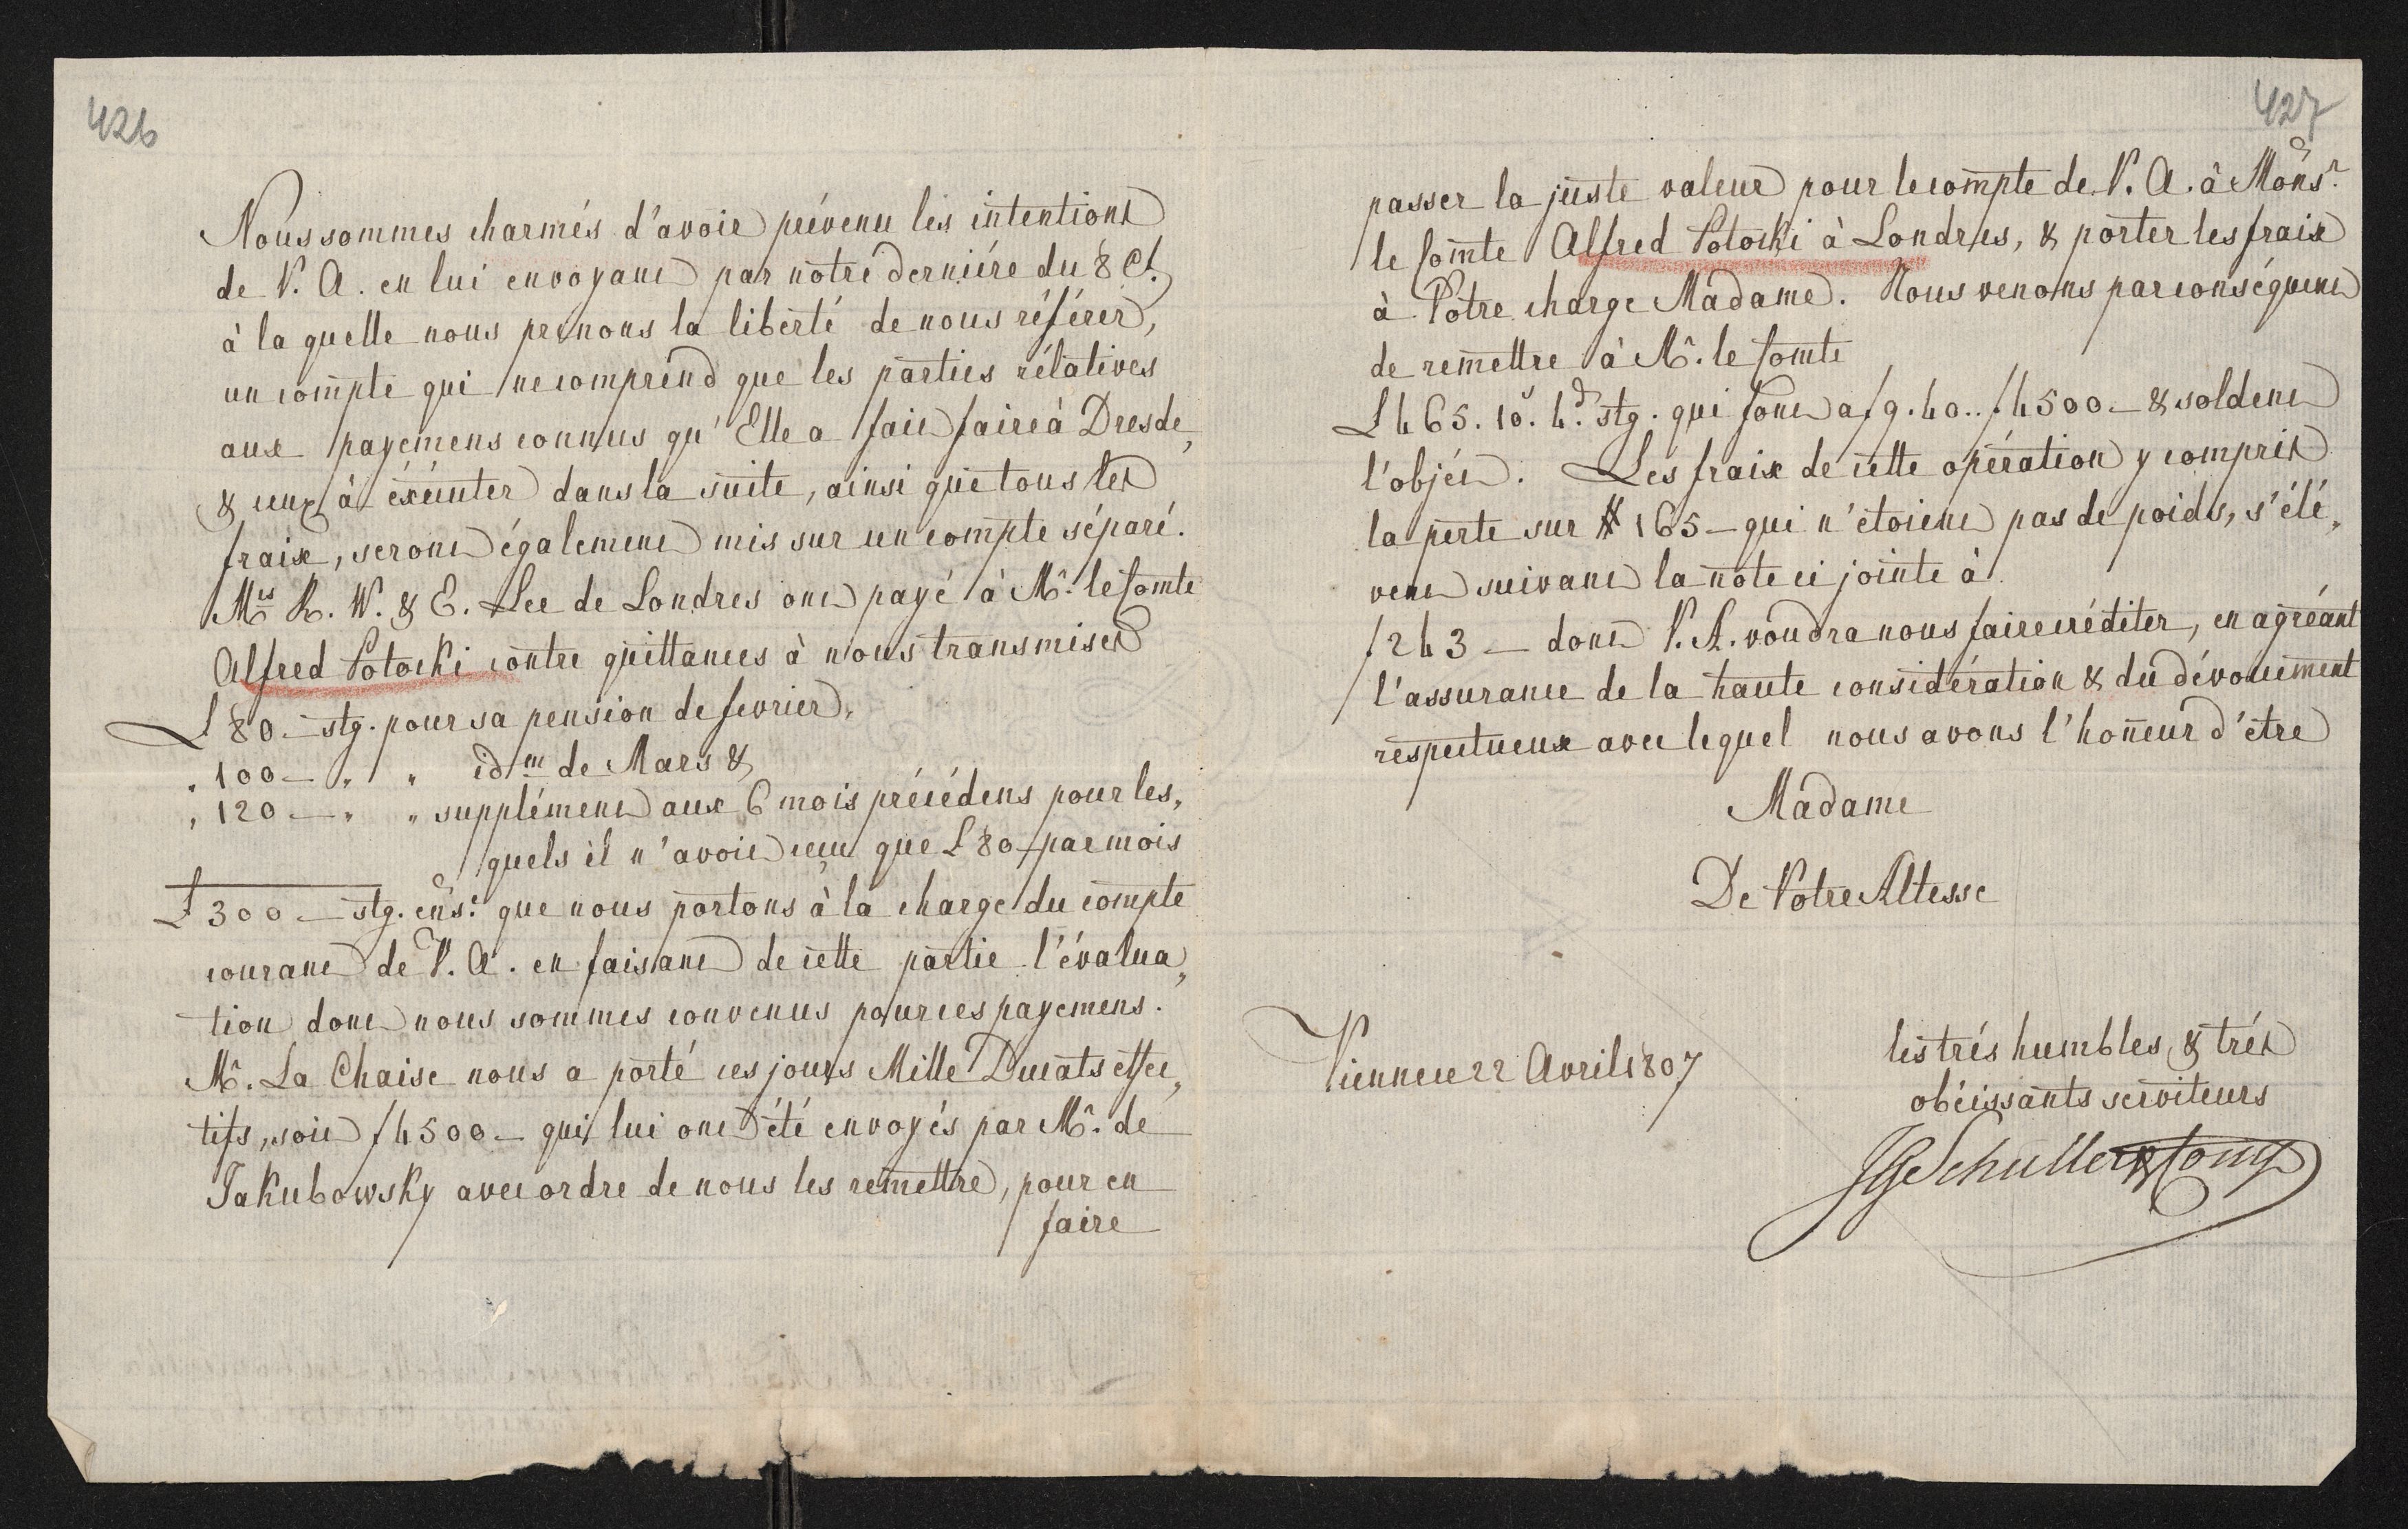 426
Nous sommes charmés d'avoir prévenu les intentions
de V. A. en lui envoyant par nôtre derniére du 8 Ct.
à la quelle nous prenons la liberté de nous référer,
un compte qui ne comprend que les parties rélatives
aux payemens connus qu'Elle a fait faire à Dresde,
& ceux à éxécuter dans la suite, ainsi que tous les
fraix, seront également mis sur un compte séparé.
Mrs R. W. & E. Lee de Londres ont payé à Mr. le Comte
Alfred Potocki contre quittances à nous transmises
£ 80.— stg. pour sa pension de fevrier,
" 100 — " " idm de Mars &
" 120 — " " supplément aux 6 mois précédens pour les„
quels il n'avoit reçu que £ 80 — par mois
£ 300 — stg. ense. que nous portons à la charge du compte
courant de V. A. en faisant de cette partie l'évalua„
tion dont nous sommes convenus pour ces payemens.
Mr. La Chaise nous a porté ces jours Mille Ducats effec„
tifs, soit f 4500 — qui lui ont été envoyés par Mr. de
Jakubowsky avec ordre de nous les remettre, pour en
faire
427
passer la juste valeur pour le compte de V. A. à Monsr.
le Comte Alfred Potocki à Londres, & porter les fraix
à Votre charge Madame. Nous venons par conséquent
de remettre à Mr. le Comte
£ 465. 10s. 4d. stg. qui font a f 9. 40.. f 4500 — & soldent
l'objét. Les fraix de cette opération y compris
la perte sur # 165 — qui n'étoient pas de poids, s'élé„
vent suivant la note ci jointe à
f 243 — dont V. A. voudra nous faire créditer, en agréant
l'assurance de la haute considération & du dévouement
respectueux avec lequel nous avons l'honneur d'être
Madame
De Votre Altesse
Vienne ce 22 Avril 1807
les trés humbles & trés
obéissants serviteurs
JG Schuller & Comp